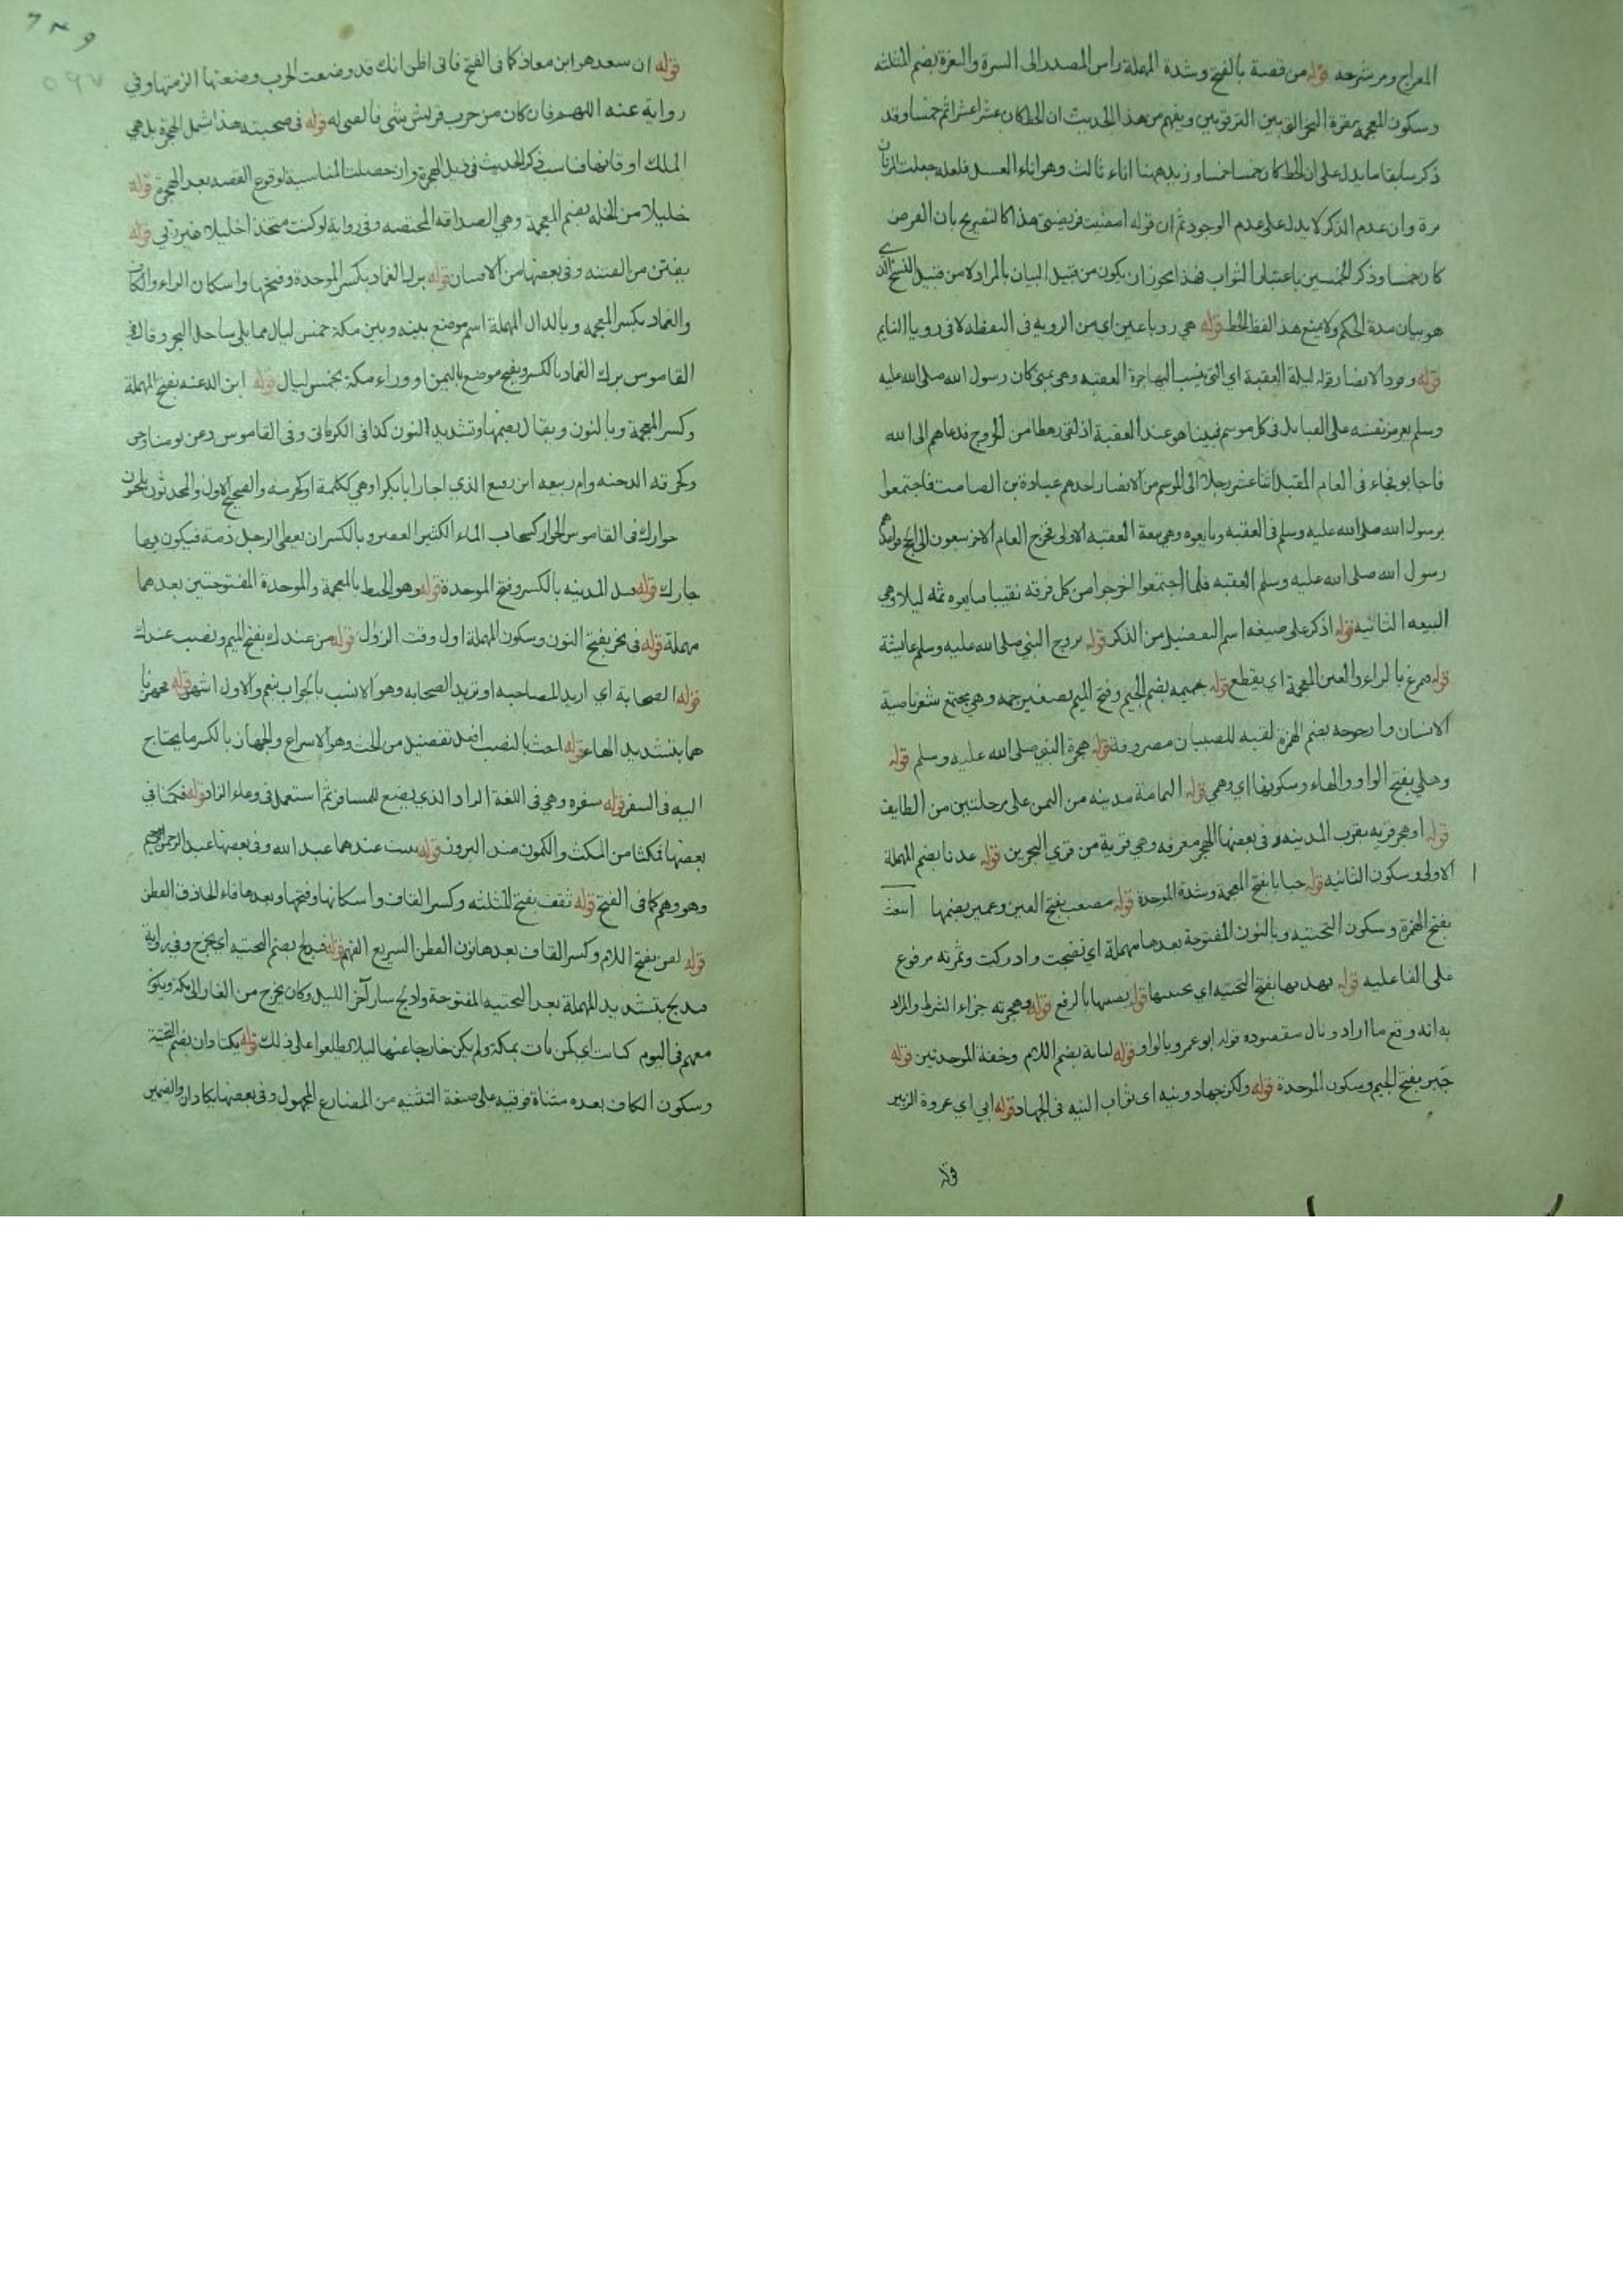 المعراج ومر شرحه قوله من قصة بالفتح وشدة المهملة راس المصدر الى السرة والثغرة بضم المثلثة
وسكون المعجمة نقرة النحر التي بين الترقوتين ويفهم من هذا الحديث ان الحط كان عشرا عشرا ثم خمسا وقد
ذكر سابقا ما يدل على ان الحط كان خمسا خمسا وزيد ههنا اناء ثالث وهو اناء العسل فلعله جعلت المرتان
مرة وان عدم الذكر لا يدل على عدم الوجود ثم ان قوله امضيت فريضتي هذا كالتصريح بان الفرض
كان خمسا وذكر الخمسين باعتبار الثواب فهذا يجوز ان يكون من قبيل البيان بالمراد لا من قبيل النسخ الذي
هو بيان مدة الحكم ولا يمنع هذا لفظ الحط قوله هي رويا عين اي من الروية في اليقظة لا في رويا النايم
قوله وفود الانصار قوله ليلة العقبة اي التي ينسب اليها جمرة العقبة وهي بمنى كان رسول الله صلى الله عليه
وسلم يعرض نفسه على القبايل في كل موسم فبينا هو عند العقبة اذ لقي رهطا من الخزرج فدعاهم الى الله
فاجابوه فجاء في العام المقبل اثنا عشر رجلا الى الموسم من الانصار احدهم عبادة بن الصامت فاجتمعوا
برسول الله صلى الله عليه وسلم في العقبة وبايعوه وهي بيعة العقبة الاولى فخرج العام الاخر سبعون الى الحج فواعدهم
رسول الله صلى الله عليه وسلم العقبة فلما اجتمعوا اخرجوا من كل فرقة نقيبا فبايعوه ثمه ليلا وهي
البيعة الثانية قوله اذكر على صيغة اسم التفضيل من الذكر قوله تزوج النبي صلى الله عليه وسلم عائشة
قوله فتمرق بالراء والغين المعجمة اي يقطع قوله جميمة بضم الجيم وفتح الميم تصغير جمة وهي مجتمع شعر ناصية
الانسان وارجوحة بضم الهمزة لعبة للصبيان معروفة قوله هجرة النبي صلى الله عليه وسلم قوله
وهلي بفتح الواو والهاء وسكونها اي وهمي قوله اليمامة مدينة من اليمن على مرحلتين من الطايف
قوله او هجر قرية بقرب المدينة وفي بعضها الهجر معرفة وهي قرية من قرى البحرين قوله عدنا بضم المهملة
الاولى وسكون الثانية قوله خبابا بفتح المعجمة وشدة الموحدة قوله مصعب بفتح العين وعمير بضمها اينعت
بفتح الهمزة وسكون التحتية وبالنون المفتوحة بعدها مهملة اي نضجت وادركت وثمرته مرفوع
على الفاعلية قوله يهدبها بفتح التحتية اي يجتنيها قوله يصيبها بالرفع قوله وهجرته جزاء الشرط والمراد
به انه وقع ما اراد ونال مقصوده قوله ابو عمرو بالواو قوله لبابة بضم اللام وخفة الموحدتين قوله
جبر بفتح الجيم وسكون الموحدة قوله ولكن جهاد ونية اي ثواب النية في الجهاد قوله ابي اي عروة الزبير
قوله
قوله ان سعد هو ابن معاذ كما في الفتح فاني اظن انك قد وضعت الحرب وضعتها الزمتها وفي
رواية عنه اللهم فان كان من حرب قريش شي فابقني له قوله في صحبته هذا يشمل الهجرة بل هي
الملك او فانها فناسب ذكر الحديث في ذيل الهجرة وان حصلت المناسبة لوقوع القصة بعد الهجرة قوله
خليلا من الخلة بضم المعجمة وهي الصداقة المختصة وفي رواية لو كنت متخذا خليلا غير ربي قوله
يفتن من الفتنة وفي بعضها من الافتتان قوله برك الغماد بكسر الموحدة وفتحها واسكان الراء والكاف
والغماد بكسر المعجمة وبالدال المهملة اسم موضع بينه وبين مكة خمس ليال مما يلي ساحل البحر وقال في
القاموس برك الغماد بالكسر ويفتح موضع باليمن او وراء مكة بخمس ليال قوله ابن الدغنة بفتح المهملة
وكسر المعجمة وبالنون ويقال بضمها وتشديد النون كذا في الكرماني وفي القاموس دغن يومنا دجن
وكحزقة الدجنة وام ربيعة ابن رفيع الذي اجار ابا بكر او هي ككلمة او كخرمة والصحيح الاول والمحدثون يلحنون
جوارك في القاموس الجوار كسحاب الماء الكثير القعير وبالكسر ان يعطى الرجل ذمة فيكون بها
جارك قوله قبل المدينة بالكسر وفتح الموحدة قوله وهو الخبط بالمعجمة والموحدة المفتوحتين بعدهما
مهملة قوله في نحر بفتح النون وسكون المهملة اول وقت الزوال قوله من عندك بفتح الميم ونصب عندك
قوله الصحابة اي اريد المصاحبة او تريد الصحابة وهو الانسب بالجواب بنعم والاول اشهر قوله فجهزنا
هما بتشديد الهاء قوله احث بالنصب افعل تفضيل من الحث وهو الاسراع والجهاز بالكسر ما يحتاج
اليه في السفر قوله سفرة وهي في اللغة الزاد الذي يصنع للمسافر ثم استعمل في وعاء الزاد قوله فكمنا في
بعضها فمكثا من المكث والكمون ضد البروز قوله يبيت عندهما عبد الله وفي بعضها عبد الرحمن
وهو وهم كما في الفتح قوله ثقف بفتح المثلثة وكسر القاف واسكانها وفتحها وبعدها فاء الحاذق الفطن
قوله لقن بفتح اللام وكسر القاف بعدها نون الفطن السريع الفهم قوله فيدلج بضم التحتية اي يخرج وفي رواية
فيدلج بتشديد المهملة بعد التحتية المفتوحة وادلج سار آخر الليل وكان يخرج من الغار الى مكة ويكون
معهم في اليوم كبائت اي كمن بات بمكة ولم يكن خارجا عنها ليلا ليطلعوا على ذلك قوله يكتادان بضم التحتية
وسكون الكاف بعده مثناة فوقية على صيغة التثنية من المضارع المجهول وفي بعضها يكادان والضمير